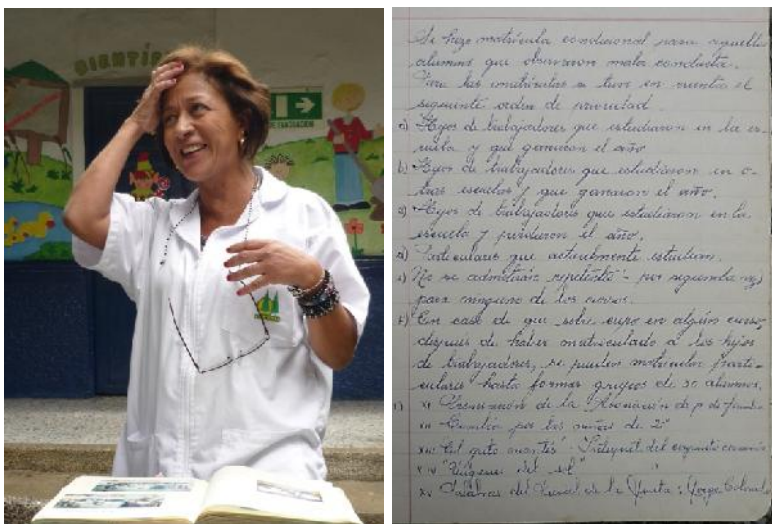 CIENTÍF
Se hizo matrícula condicional para aquellos
alumnos que observaron mala conducta.
Para las matrículas se tuvo en cuenta el
siguiente orden de prioridad.
a) Hijos de trabajadores que estudiaron en la es-
cuela y que ganaron el año
b) Hijos de trabajadores que estudiaron en o-
tras escuelas y que ganaron el año.
c) Hijos de trabajadores que estudiaron en la
escuela y perdieron el año.
d) Particulares que actualmente estudian.
No se admitirán repitentes por segunda vez
para ninguno de los cursos.
En caso de que sobre cupo en algún curso,
después de haber matriculado a los hijos
de trabajadores, se pueden matricular parti-
culares hasta formar grupos de 30 alumnos.
XI de la Asociación de p. de familia
XII por los niños de 2º
XIII "El gato
XIV del sol"
XV Palabras del de la Junta: Jorge